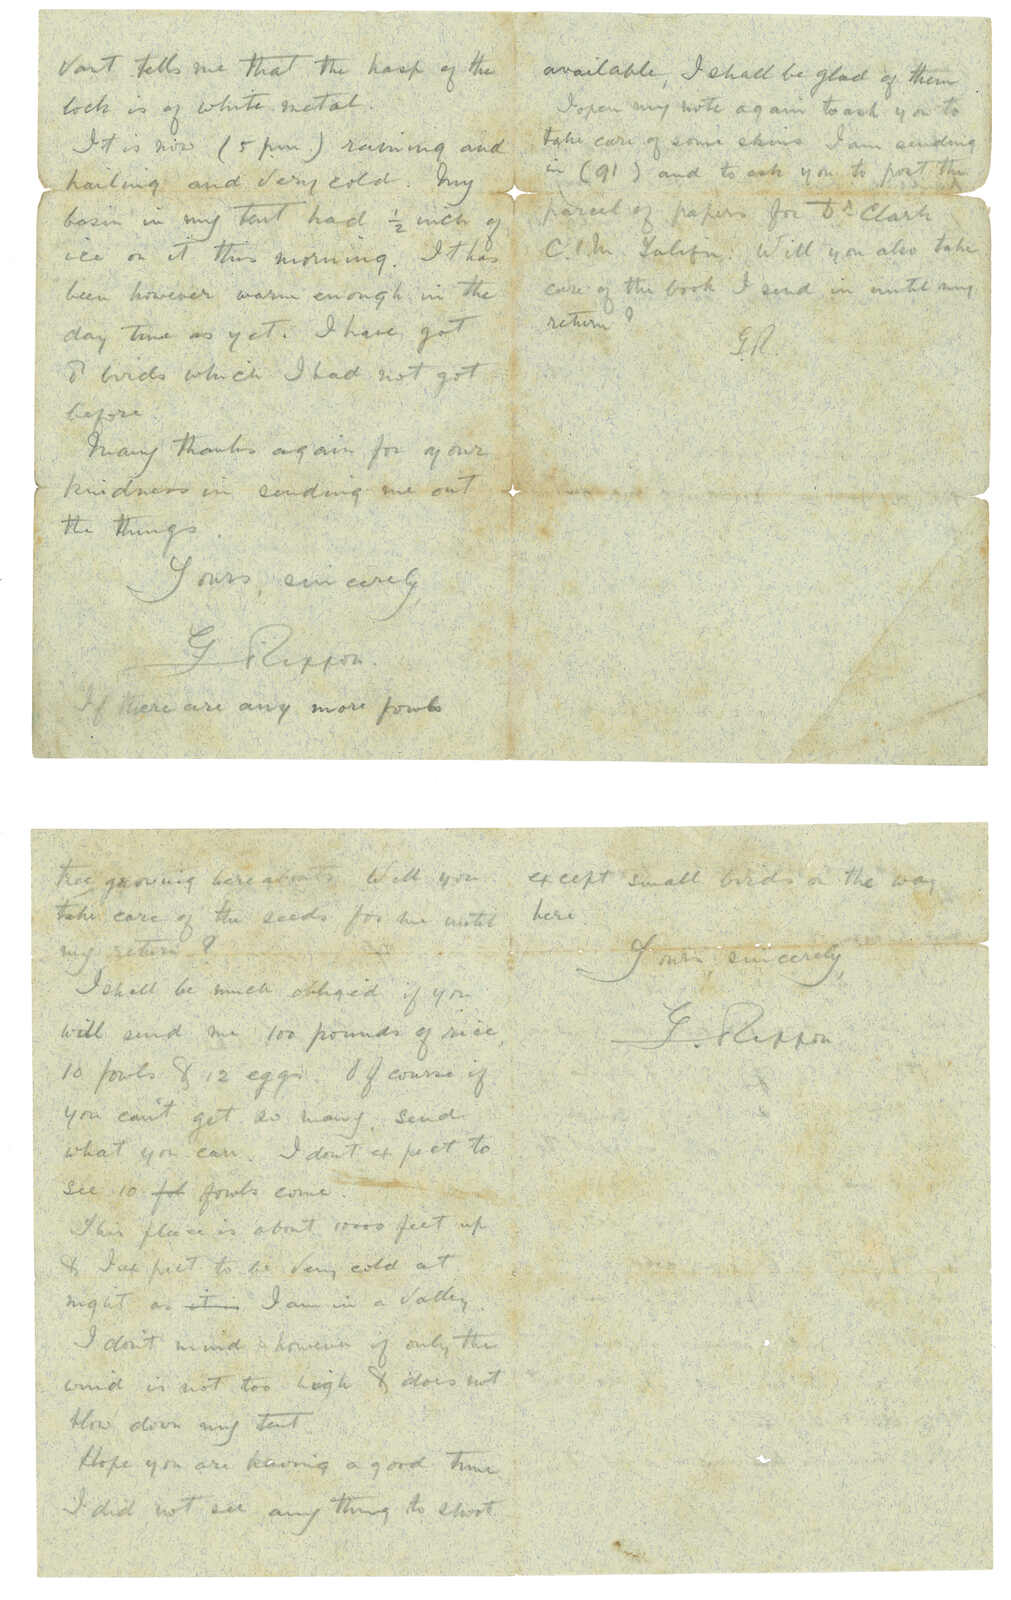 Vart tells me that the hasp of the
lock is of white metal.
It is now (5 pm) raining and
hailing and very cold. My
basin in my tent had ½ inch of
ice on it this morning. It has
been however warm enough in the
day time as yet. I have got
8 birds which I had not got
before.
Many thanks again for your
kindness in sending me out
the things.
Yours sincerely,
G Rippon.
If there are any more fowls
available, I shall be glad of them
I open my note again to ask you to
take care of some skins I am sending
in (91) and to ask you to post the
parcel of papers for Dr Clark
C.I.M. Talifu. Will you also take
care of the book I send in until my
return?
G.R.
tree growing hereabouts Will you
take care of the seeds for me until
my return?
I shall be much obliged if you
will send me 100 pounds of rice,
10 fowls & 12 eggs. Of course if
you can't get so many, send
what you can. I don't expect to
see 10 fowls come.
This place is about 10000 feet up
& I expect to be very cold at
night as it is I am in a valley.
I don't mind however if only the
wind is not too high & does not
blow down my tent
Hope you are having a good time
I did not see any thing to shoot
except small birds on the way
here.
Yours sincerely,
G. Rippon